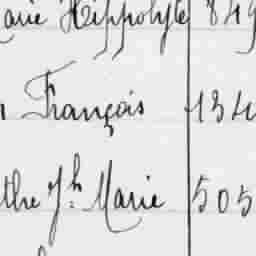 arie Hippolyte 849
n François 134
the Jh Marie 505